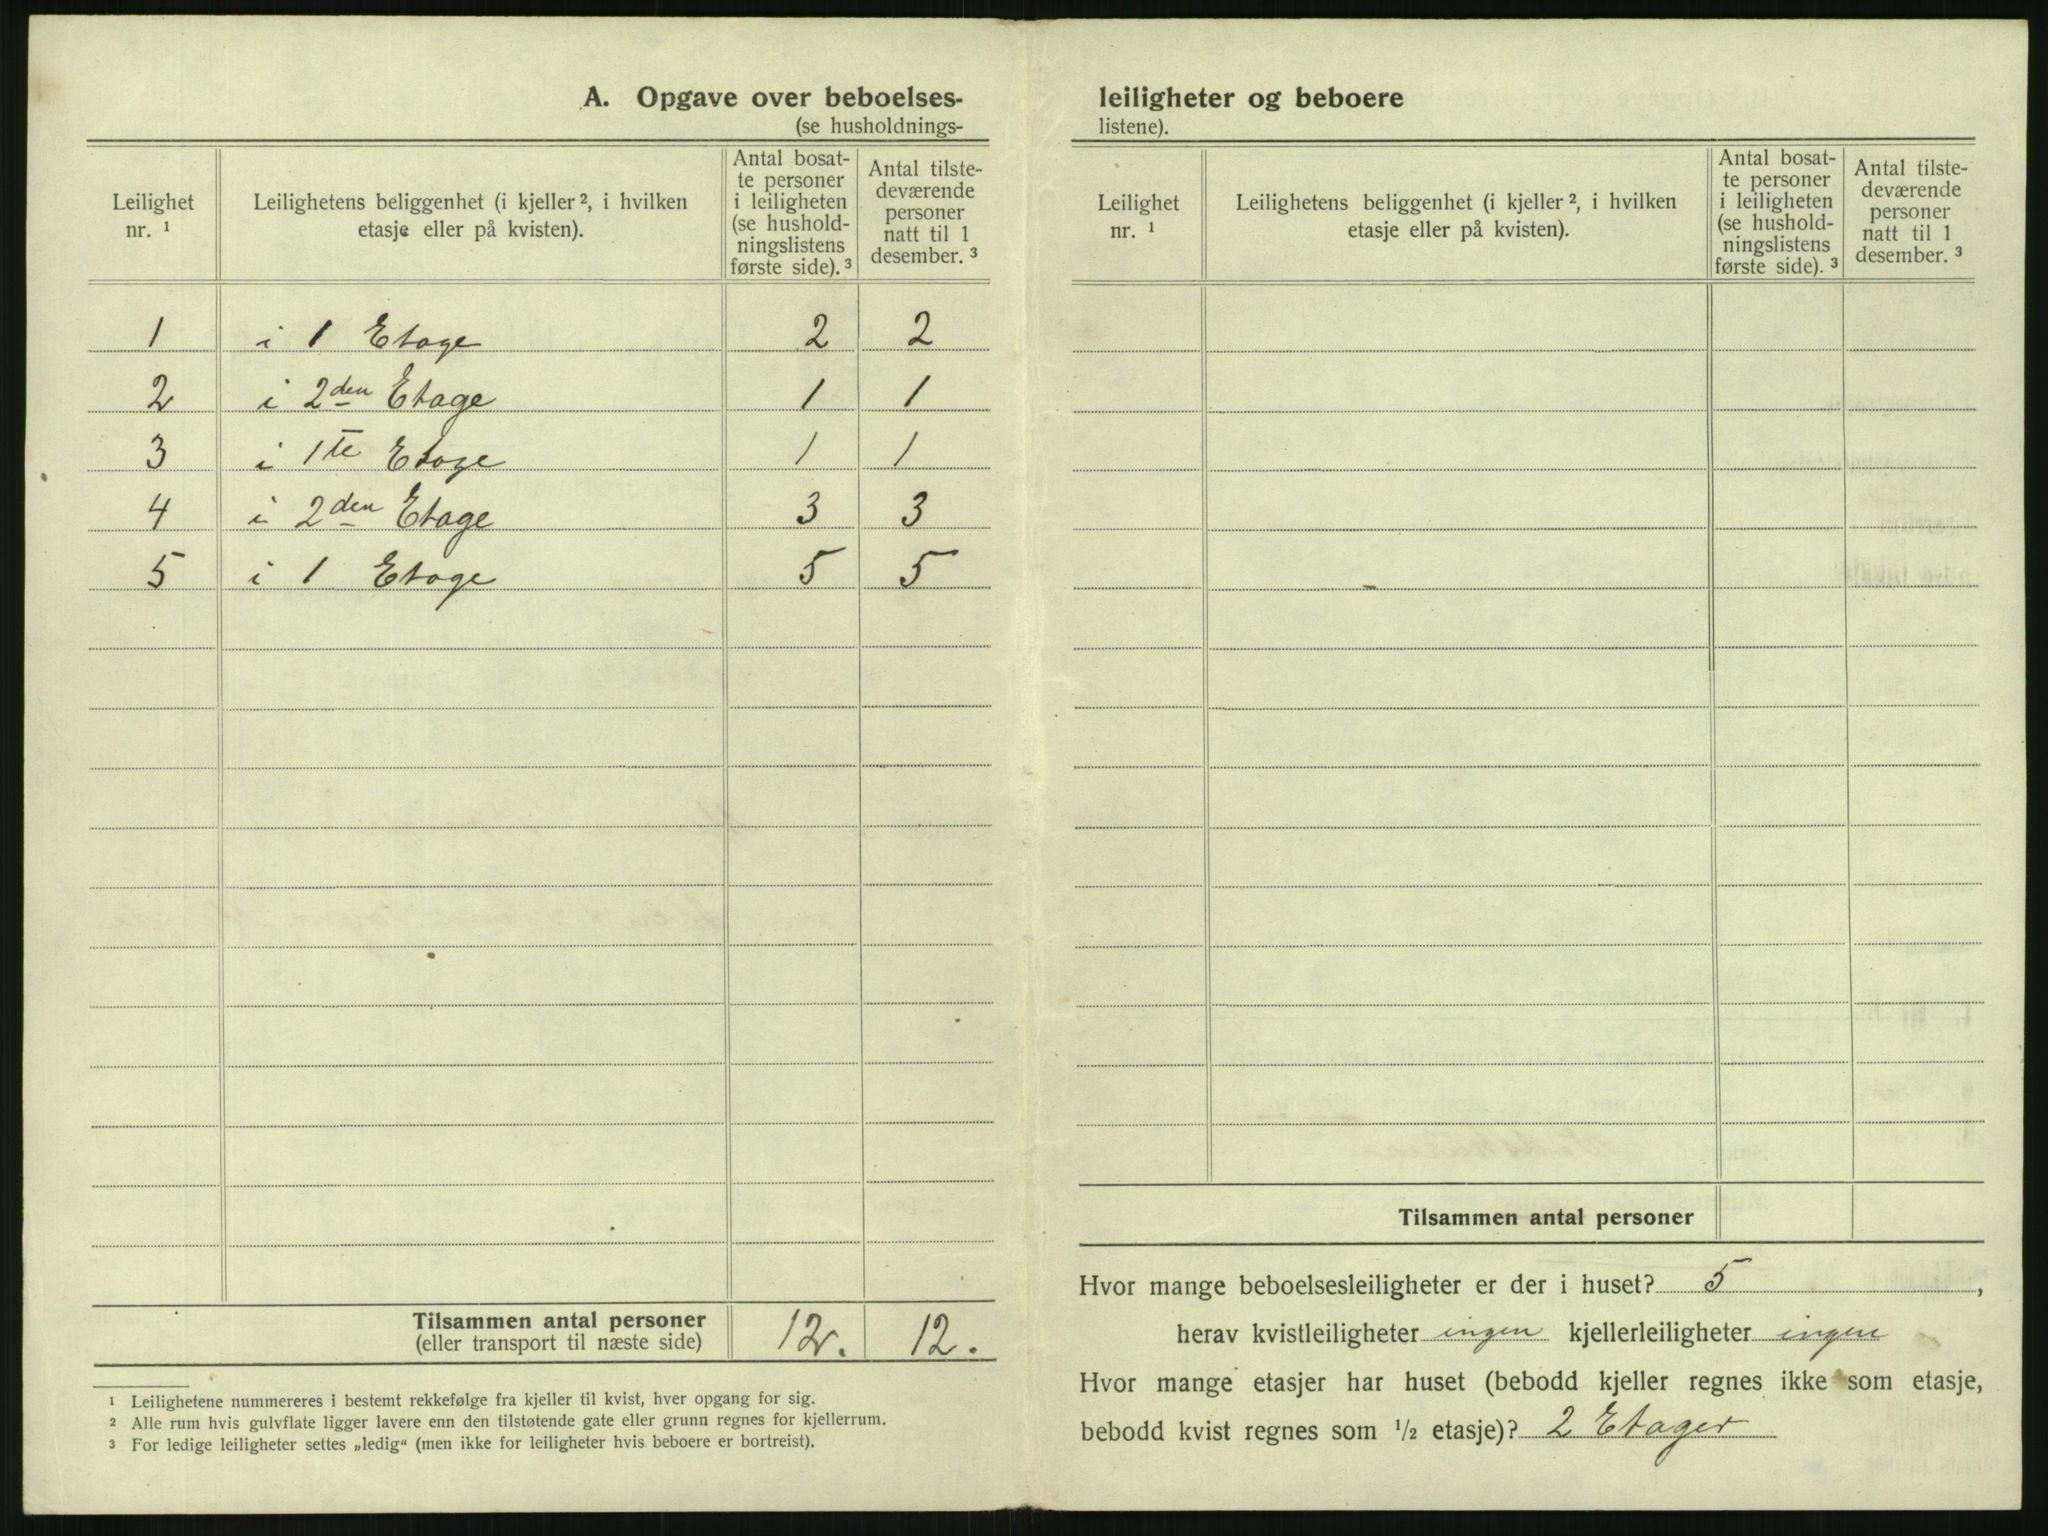 A. Opgave over beboelses-
(se husholdnings-
Leilighet nr. ¹
Leilighetens beliggenhet (i kjeller ², i hvilken etasje eller på kvisten).
Antal bosatte personer i leiligheten (se husholdningslistens første side). ³
Antal tilstedeværende personer natt til 1 desember. ³
1 i 1 Etage 2 2
2 i 2den Etage 1 1
3 i 1te Etage 1 1
4 i 2den Etage 3 3
5 i 1 Etage 5 5
Tilsammen antal personer 12. 12.
(eller transport til næste side)
¹ Leilighetene nummereres i bestemt rekkefølge fra kjeller til kvist, hver opgang for sig.
² Alle rum hvis gulvflate ligger lavere enn den tilstøtende gate eller grunn regnes for kjellerrum.
³ For ledige leiligheter settes „ledig“ (men ikke for leiligheter hvis beboere er bortreist).
leiligheter og beboere
listene).
Leilighet nr. ¹
Leilighetens beliggenhet (i kjeller ², i hvilken etasje eller på kvisten).
Antal bosatte personer i leiligheten (se husholdningslistens første side). ³
Antal tilstedeværende personer natt til 1 desember. ³
Tilsammen antal personer
Hvor mange beboelsesleiligheter er der i huset? 5,
herav kvistleiligheter ingen kjellerleiligheter ingen
Hvor mange etasjer har huset (bebodd kjeller regnes ikke som etasje,
bebodd kvist regnes som ½ etasje)? 2 Etager